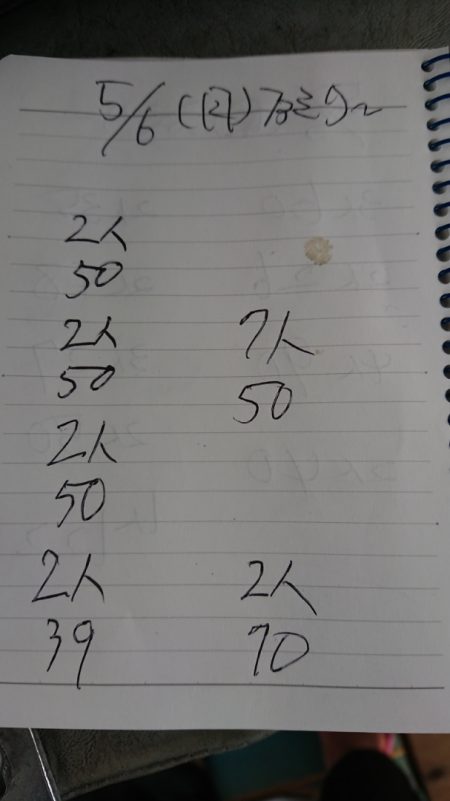 5/6 (四)
2人
50
2人
50
2人
50
2人
39
7人
50
2人
70